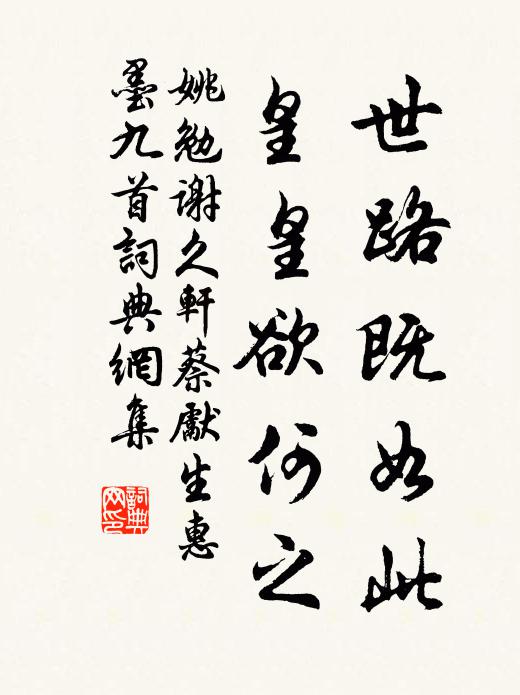 世路既如此
皇皇欲何之
姚勉谢久軒蔡獻生惠
墨九首詞典網集
詞典
网印